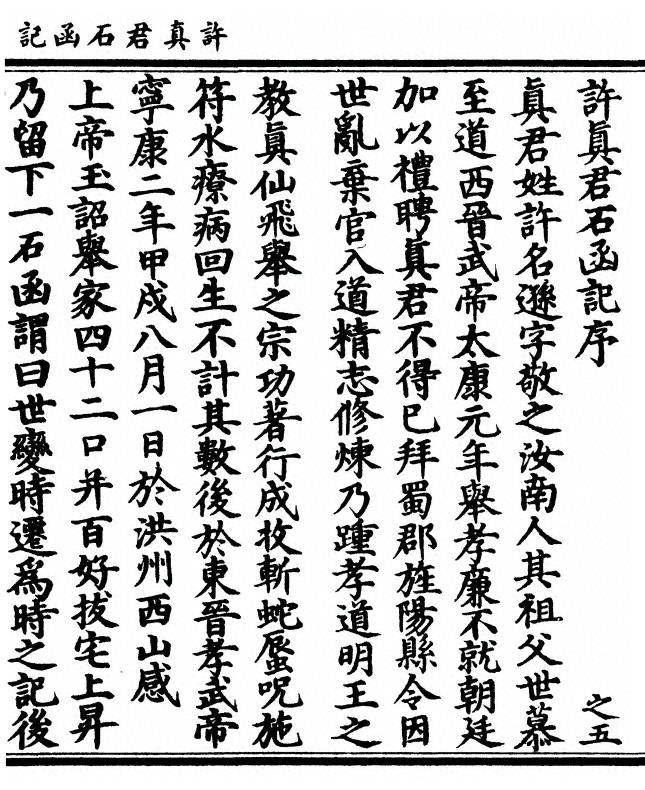 許真君石函記
許真君石函記序
之五
真君姓許名遜字敬之汝南人其祖父世慕
至道西晉武帝太康元年舉孝廉不就朝廷
加以禮聘真君不得已拜蜀郡旌陽縣令因
世亂棄官入道精志修煉乃踵孝道明王之
教眞仙飛舉之宗功著行成救斬蛇蜃呪施
符水療病回生不計其數後於東晉孝武帝
寧康二年甲戌八月一日於洪州西山感
上帝玉詔舉家四十二口并百好拔宅上昇
乃留下一石函謂曰世變時遷爲時之記後